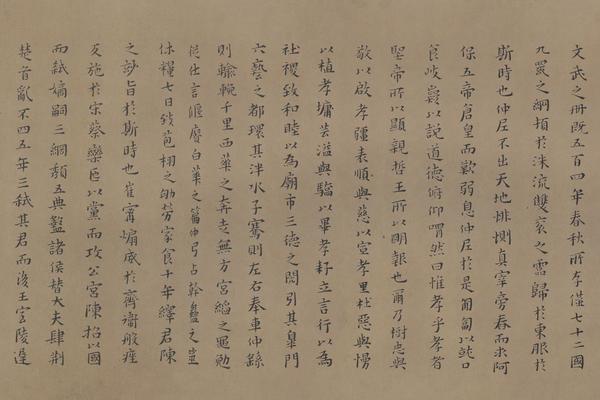 文武之冊既五百四年春秋所存僅七十二國
九罭之綱頹於洙流雙袞之歸於東服於
斯時也仲尼不出天地悱惻真宰旁春而求阿
保五帝倉皇而歎弱息仲尼於是匍匐以就口
食岐嶷以說道德俯仰喟然曰惟孝乎孝者
聖帝所以顯親哲王所以明報也爾乃樹忠與
敬以啟孝疆表順與慈以宣孝里杜惡與慢
以植孝墉芸溢與驕以畢孝耔立言行以為
社稷致和睦以為廟市三德之閎引其皋門
六藝之都環其泮水子騫則左右奉車仲繇
則輸輓千里西華之奔走無方宮縚之黽勉
從仕言偃賡白華之篇仲弓占幹蠱之
休糧七日發苞栩之劬勞家食十年繹君陳
之旨於斯時也崔甯煽威於齊衛般痤
施於宋蔡欒以黨而攻公宮陳招以國
而弒嫡嗣三綱頹五典盭諸侯替大夫肆荆
楚首亂不四五年三弒其君而後王室陵遲